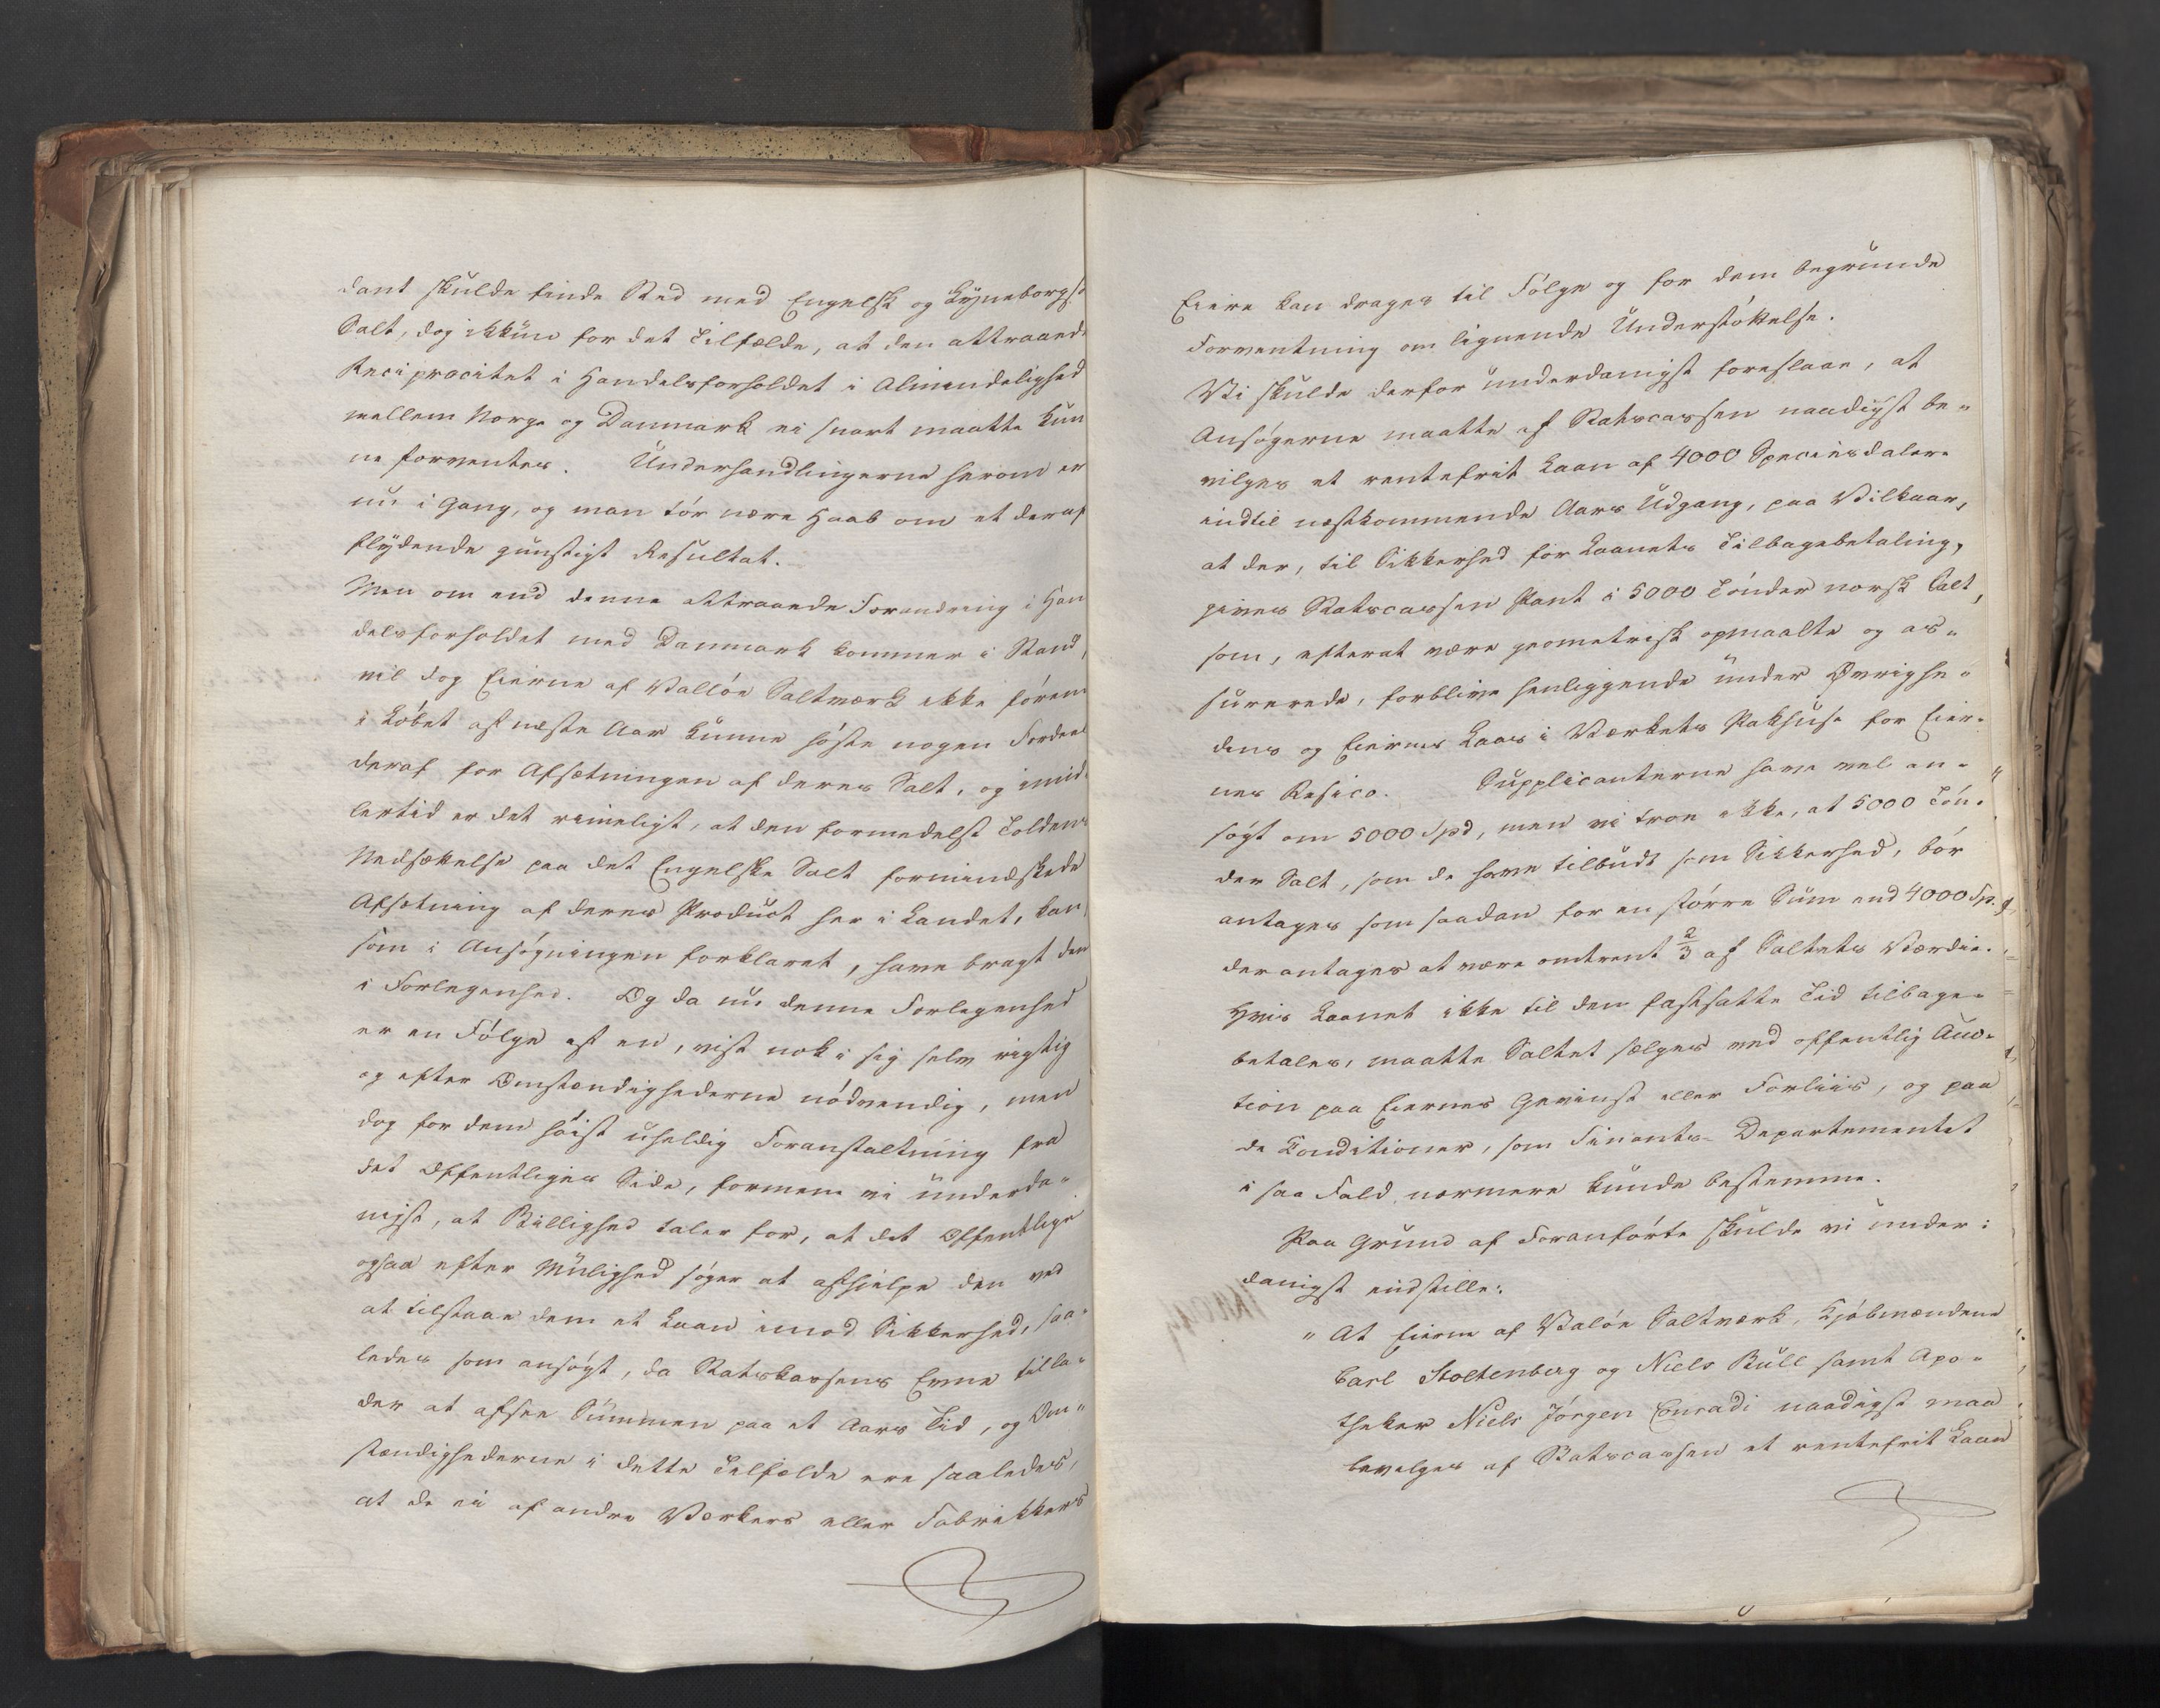 dant skulde finde Sted med Engelsk og Lyneborgsk
Salt, dog ikkun for det Tilfælde, at den attraaede
Reciprocitet i Handelsforholdet i Almindelighed
mellem Norge og Danmark ei snart maatte kun
ne forventes. Underhandlingerne herom er
nu i Gang, og man tør nære Haab om et deraf
flydende gunstigt Resultat.
Men om end denne attraaede Forandring i Han
delsforholdet med Danmark kommer i Stand,
vil dog Eierne af Valløe Saltværk ikke førend
i Løbet af næste Aar kunne høste nogen Fordeel
deraf for Afsætningen af deres Salt, og imid-
lertid er det rimeligt, at den formedelst Toldens
Nedsættelse paa det Engelske Salt formindskede
Afsætning af deres Product her i Landet, kan,
som i Ansøgningen forklaret, have bragt dem
i Forlegenhed. Og da nu denne Forlegenhed
er en Følge af en, vist nok i sig selv rigtig
og efter Omstændighederne nødvendig, men
dog for dem høist uheldig Foranstaltning fra
det Offentliges Side, formene vi underda-
nigst, at Billighed taler for, at det Offentlige
ogsaa efter Mulighed søger at afhjelpe den ved
at tilstaae dem et Laan imod Sikkerhed, saa-
ledes som ansøgt, da Statskassens Evne tilla-
der at afsee Summen paa et Aars Tid, og Om-
stændighederne i dette Tilfælde ere saaledes,
at de ei af andre Værkers eller Fabrikkers
Eiere kan drages til Følge og for dem begrunde
Forventning om lignende Understøttelse.
Vi skulde derfor underdanigst foreslaae, at
Ansøgerne maatte af Statscassen naadigst be-
vilges et rentefrit Laan af 4000 Speciesdaler
indtil næstkommende Aars Udgang, paa Vilkaar,
at der, til Sikkerhed for Laanets Tilbagebetaling,
gives Statscassen Pant i 5000 Tønder norsk Salt,
som, efterat være geometrisk opmaalte og as-
surerede, forblive henliggende under Øvrighe-
dens og Eiernes Laas i Værkets Pakhuse for Eier-
nes Resico. Supplicanterne have vel an-
søgt om 5000 Spd, men vi troe ikke, at 5000 Tøn-
der Salt, som de have tilbudt som Sikkerhed, bør
antages som saadan for en større Sum end 4000 Sp.
der antages at være omtrent 2/3 af Saltets Værdie.
Hvis Laanet ikke til den fastsatte Tid tilbage-
betales, maatte Saltet sælges ved offentlig Auc-
tion paa Eiernes Gevinst eller Forliis, og paa
de Conditioner, som Finants-Departementet
i saa Fald nærmere kunde bestemme.
Paa Grund af Foranførte skulde vi under-
danigst indstille:
" At Eierne af Valøe Saltværk, Kjøbmændene
Carl Stoltenberg og Niels Bull samt Apo-
theker Niels Jørgen Conradi naadigst maa
bevilges af Statscassen et rentefrit Laan